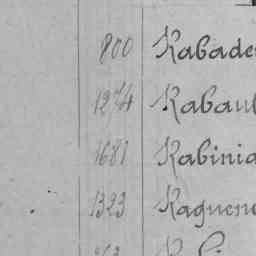 800 Rabade
1274 Rabaul
1681 Rabinia
1323 Raguene